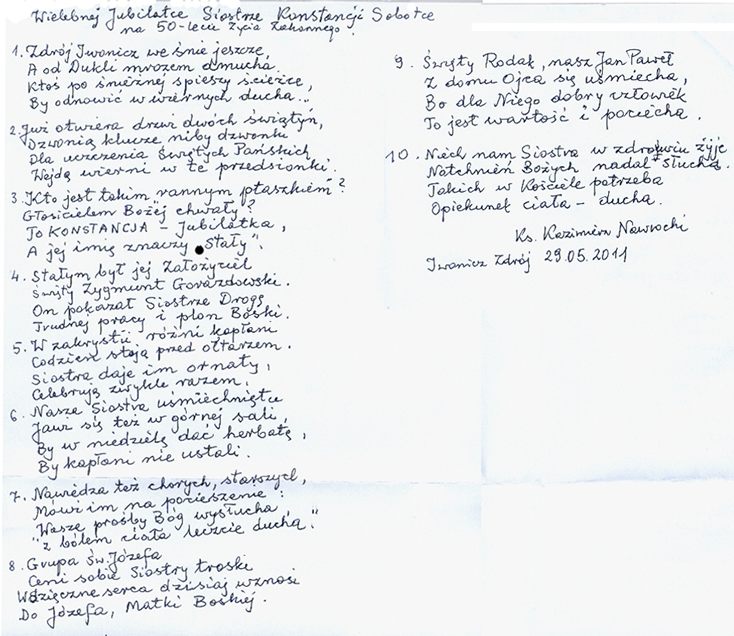 Wielebnej Jubilatce Siostrze Konstancji Sobotce
na 50-lecie życia zakonnego.
1. Zdrój Iwonicz we śnie jeszcze,
A od Dukli mrozem dmucha.
Ktoś po śnieżnej spieszy ścieżce,
By odnowić w wiernych ducha...
2. Już otwiera drzwi dwóch świątyń,
Dzwonią klucze niby dzwonki
Dla uczczenia Świętych Pańskich
Wejdą wierni w te przedsionki.
3. Kto jest takim "rannym ptaszkiem"?
Głosicielem Bożej chwały?
To KONSTANCJA - Jubilatka,
A jej imię znaczy "Stały".
4. Stałym był jej Założyciel
Święty Zygmunt Gorazdowski.
On pokazał Siostrze Drogę
Trudnej pracy i plon Boski.
5. W zakrystii różni kapłani
Codzień stoją przed ołtarzem.
Siostra daje im ornaty,
Celebrują zwykle razem.
6. Nasza Siostra uśmiechnięta
Jawi się też w górnej sali,
By w niedzielę dać herbatę,
By kapłani nie ustali.
7. Nawiedza też chorych, starszych,
Mówi im na pocieszenie:
"Wasze prośby Bóg wysłucha,
z bólem ciała leczcie ducha."
8. Grupa Św. Józefa
Ceni sobie Siostry troski
Wdzięczne serca dzisiaj wznosi
Do Józefa, Matki Boskiej.
9. Święty Rodak, nasz Jan Paweł
Z domu Ojca się uśmiecha,
Bo dla Niego dobry człowiek
To jest wartość i pociecha.
10. Niech nam Siostra w zdrowiu żyje
Natchnień Bożych nadal słucha.
Takich w Kościele potrzeba
Opiekunek ciała - ducha.
Ks. Kazimierz Nawrocki
Iwonicz Zdrój 29.05.2011